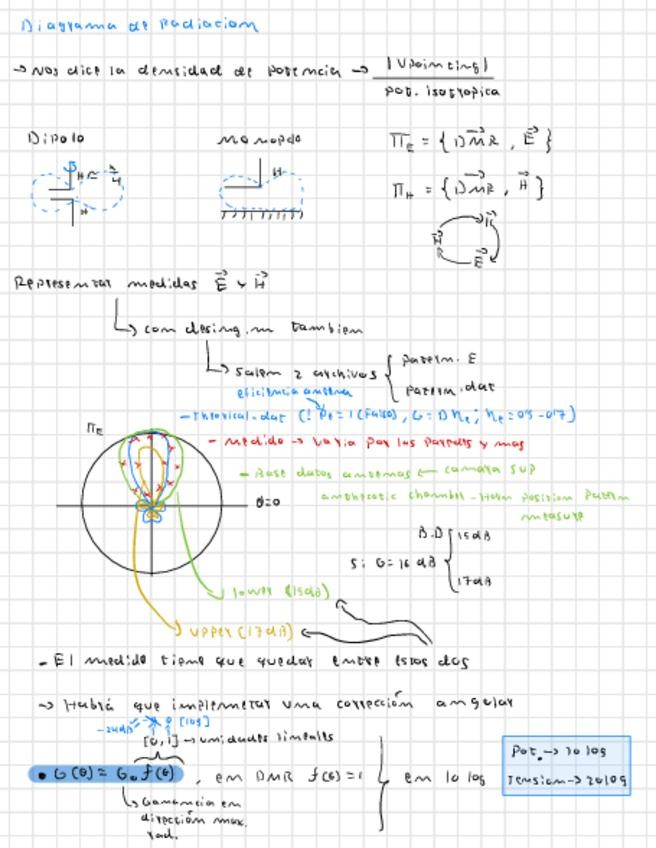 Diagrama de Radiacion
→ Nos dice la densidad de potencia → |Vpointing| / pot. isotropica
Dipolo
monopolo
Π_E = {DMR, E}
H ≈ λ/4
H
H
Π_H = {DMR, H}
H
E
Representar medidas E y H
↳ con desing.m tambien
↳ salen 2 archivos { pattern. E
pattern.dat
eficiencia antena
- Theorical.dat (! = 1 (Falso), G = D η
Π_E
- medido → varia por las paredes y mas
- Base datos antenas ← camara sup
chamber - Horn position pattern
measure
θ=0
B.D { 15dB
Si G=16 dB
17dB
lower (15dB)
upper (17dB)
- El medido tiene que quedar entre estos dos
→ Habrá que implemetar una corrección angular
-24dB
0 [log]
[0,1] → unidades lineales
• G(θ) = G₀ f(θ), en DMR f(θ)=1 } en 10 log
Pot. → 10 log
Tension → 20log
↳ Ganancia en
dirección max.
rad.